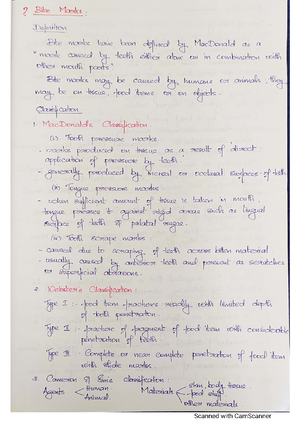 ? Bite Marks.
Definition
Bite marks have been defined by MacDonald as a
"mark caused by teeth either alone or in combination with
other mouth parts"
Bite marks may be caused by humans or animals, they
may be on tissue, food items or on objects.
Classification
1. MacDonald's Classification
(i) Tooth pressure marks
- marks produced on tissue as a result of direct
application of pressure by teeth
- generally produced by incisal or occlusal surfaces of teeth
(ii) Tongue pressure marks
- when sufficient amount of tissue is taken in mouth,
tongue presses it against rigid areas such as lingual
surface of teeth & palatal rugae.
(iii) Tooth scrape marks
- caused due to scraping of teeth across bitten material
- usually caused by anterior teeth and present as scratches
or superficial abrasions.
2. Webster's Classification
Type I : - food item fractures readily with limited depth
of tooth penetration.
Type II : fracture of fragment of food item with considerable
penetration of teeth
Type III : Complete or near complete penetration of food item
with slide marks.
3. Cameron & Sims classification
Agents Human Animal
Materials skin, body tissue
food stuff
other materials
Scanned with CamScanner